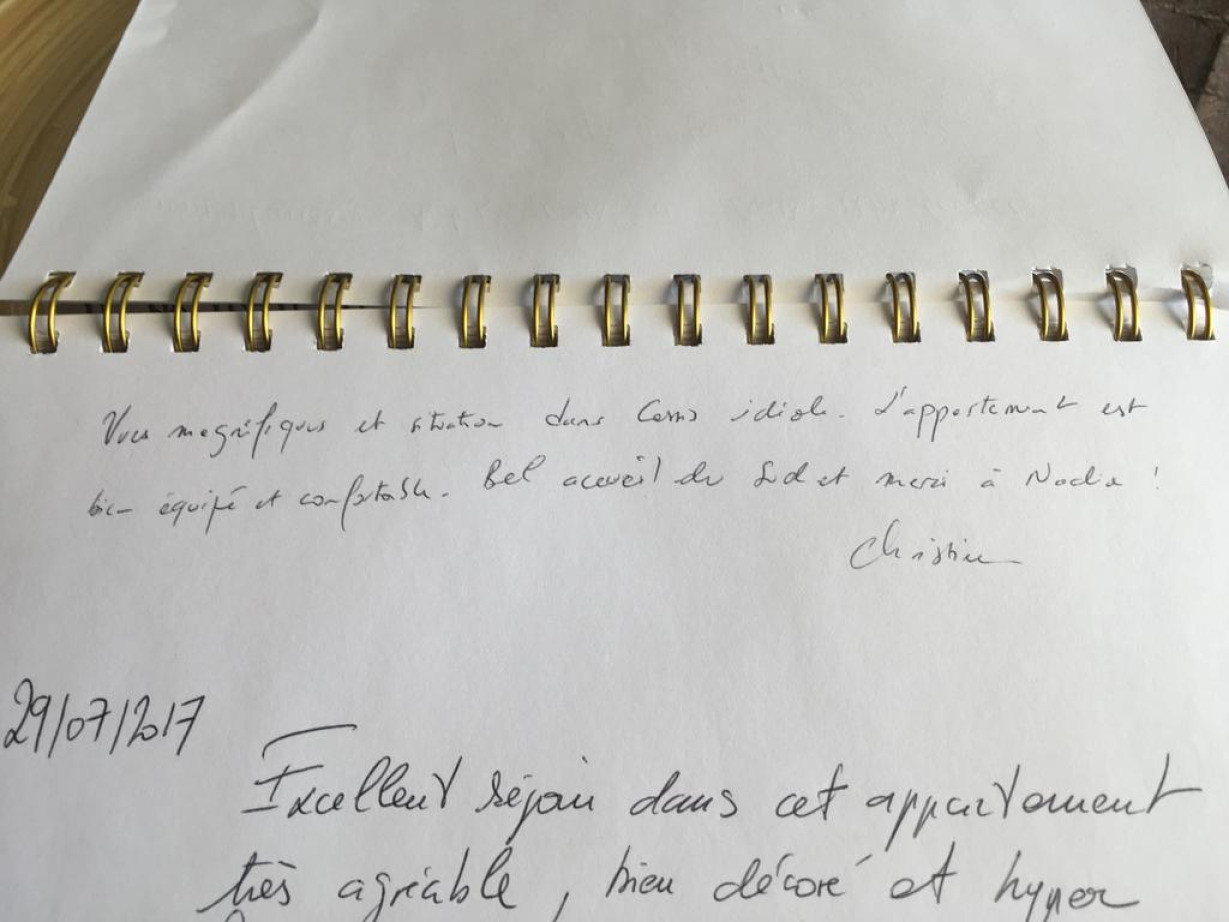 Vues magnifiques et situation dans Cassis idéale. L'appartement est
bien équipé et confortable. Bel accueil du Sud et merci à Nadia !
Christine
29/07/2017
Excellent séjour dans cet appartement
très agréable, bien décoré et hyper